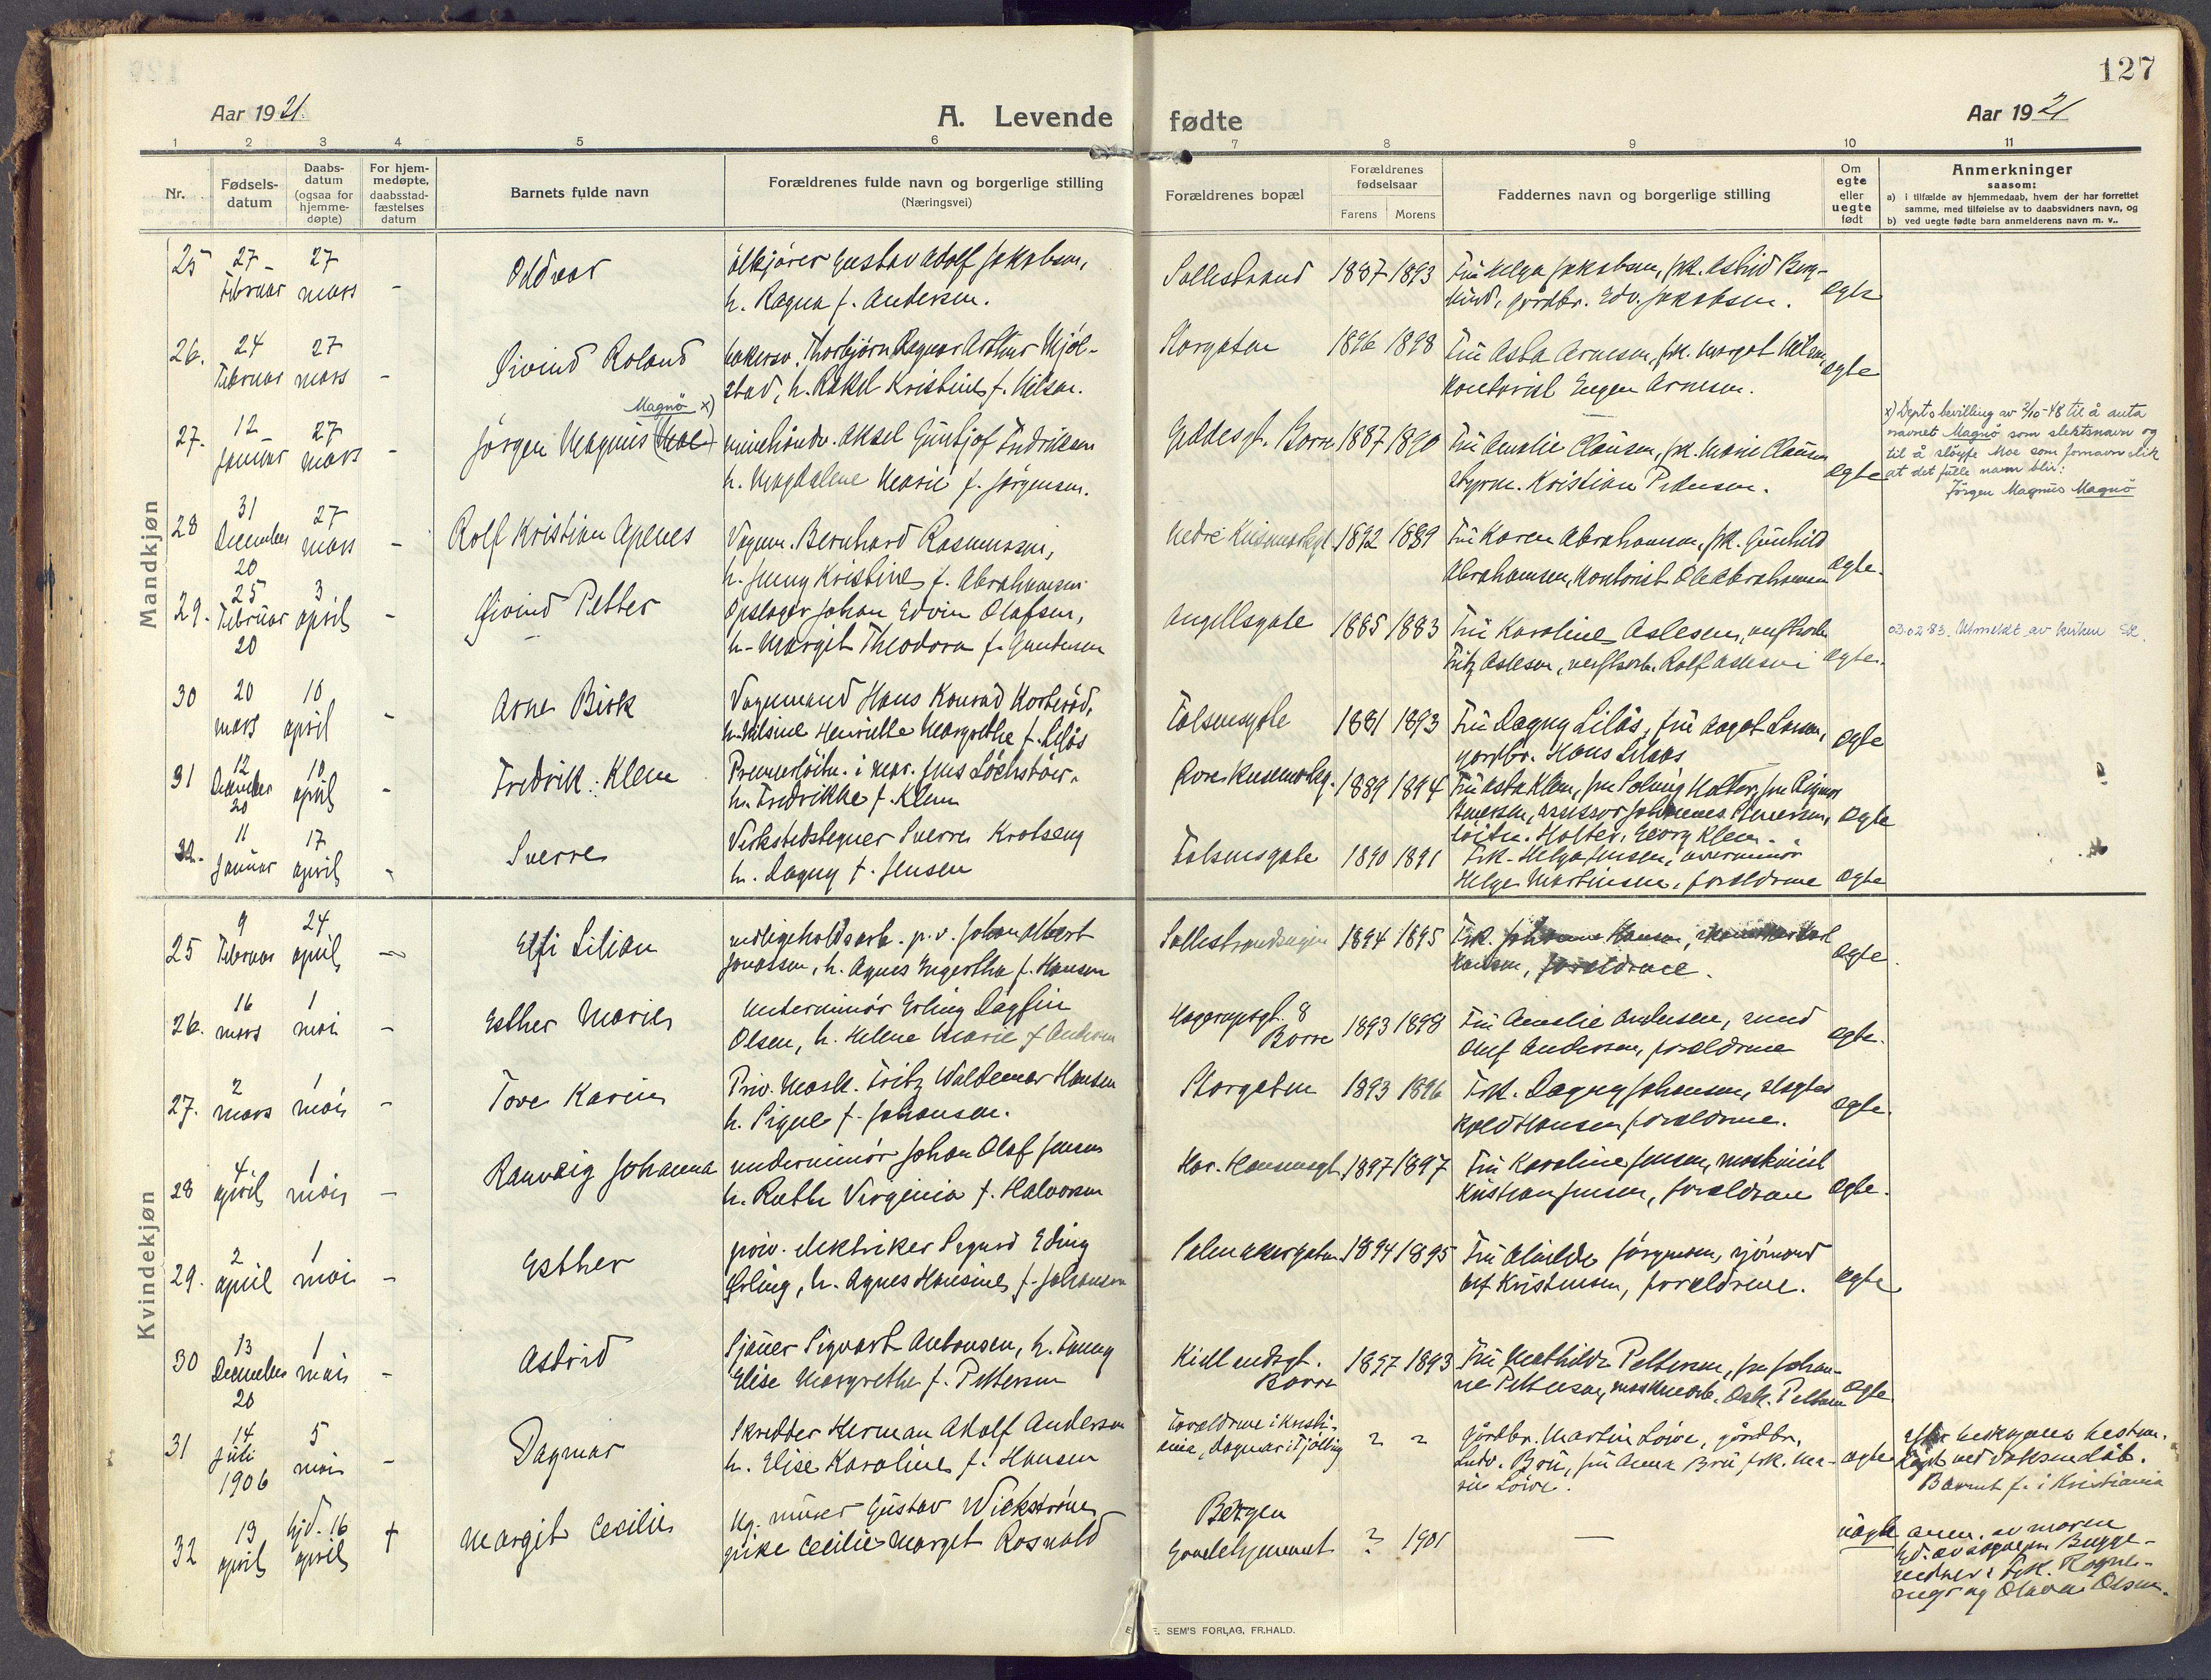 127
Aar 1921.
A. Levende
fødte
Aar 1921
1 2 3 4 5 6 7 8 9 10 11
Nr.
Fødsels-
datum
Daabs-
datum
(ogsaa for
hjemme-
døpte)
For hjem-
medøpte,
daabsstad-
fæstelses
datum
Barnets fulde navn
Forældrenes fulde navn og borgerlige stilling
(Næringsvei)
Forældrenes bopæl
Forældrenes
fødselsaar
Farens Morens
Faddernes navn og borgerlige stilling
Om
egte
eller
uegte
født
Anmerkninger
saasom:
a) i tilfælde av hjemmedaab, hvem der har forrettet
samme, med tilføielse av to daabsvidners navn, og
b) ved uegte fødte barn anmelderens navn m. v..
Mandkjøn
25 27 Februar 27 mars - Oddvar
Ølkjører Gustav Adolf Jakobsen,
h. Ragna f. Andersen.
Sollistrand 1887 1893
Fru Helga Jakobsen, frk. Astrid Berg-
lund, gårdbr. Edv. Jakobsen. egte
26. 24 Februar 27 mars - Øivind Roland
bakersv. Thorbjørn Ragnar Arthur Mjøl-
stad, h. Rakel Kristine f. Nilsen.
Storgaten 1896 1898
Fru Asta Arnesen, frk. Margot Nilsen,
kontorist Eugen Arnesen. egte
27. 12 Januar 27 mars - Jørgen Magnus (Moe) Magnø x)
h. Magdalene Marie f. Jørgensen.
Geddesgt. Borre 1887 1890
Fru Amalie Clausen, frk. Marie Clausen
styrm. Kristian Pedersen. egte
x) Depts bevilling av 2/10-48 til å anta
navnet Magnø som slektsnavn og
til å sløyfe Moe som fornavn slik
at det fulle navn blir:
Jørgen Magnus Magnø
28 31 December 20 27 mars - Rolf Kristian Apenes
Vognm. Bernhard Rasmussen,
h. Jenny Kristine f. Abrahamsen
1892 1889
Fru Karen Abrahamsen, frk. Gunhild
Abrahamsen, kontorist Ole Abrahamsen egte.
29. 25 Februar 20 3 april - Øivind Petter
Opslager Johan Edvin Olafsen,
h. Margit Theodora f. Gundersen
Angellsgate 1885 1883
Fru Karoline Aslesen, verftsarb.
Fritz Aslesen, verftsarb. Rolf Aslesen egte.
03.02.83. Utmeldt av kirken
30 20 mars 10 april - Arne Birk
Vognmand Hans Konrad Korterød,
h. Nilsine Henriette Margrethe f. Liläs
Falsensgate 1881 1893
Fru Dagny Liläs, fru Aagot Larsen,
gardbr. Hans Lilaas egte
31 12 December 20 10 april - Fredrik Klem
Premierløitn. i mar. Jens Løchstøer,
h. Fredrikke f. Klem
1889 1894
Fru Asta Klem, fru Solveig Holter, fru Rigmor
Amersen, assessor Johannes Amersen,
løitn. Holter, Georg Klem. egte
32. 11 Januar 17 april - Sverre
Verkstedstegner Sverre Krotseng
h. Dagny f. Jensen
Falsensgate 1890 1891
Frk. Helga Jensen, overminør
Helge Martinsen, forældrene egte
Kvindekjøn
25 9 Februar 24 april - Elfi Lilian
vedligeholdsarb. p. v. Johan Albert
Jonassen, h. Agnes Ingertha f. Hansen
1894 1895
Frk. Johanne Hansen,
Hansen, forældrene. egte
26. 16 mars 1 mai - Esther Marie
Underminør Erling Dagfin
Olsen, h. Helene Marie f. Andersen
Hagerupsgt. 8
Borre 1893 1898
Fru Amalie Andersen,
Oluf Andersen, forældrene egte.
27. 2 mars 1 mai - Tove Karin
Priv. Mask. Fritz Waldemar Hansen
h. Signe f. Johansen.
Storgaten 1893 1896
Frk. Dagny Johansen, slagter
Kjeld Hansen, forældrene. egte.
28 4 april 1 mai - Ranveig Johanna
underminør Johan Olaf Jensen
h. Ruth Virginia f. Halvorsen
Har. Hansensgt. 1897 1897
Fru Karoline Jensen, maskinist
Kristian Jensen, forældrene egte.
29. 2 april 1 mai - Esther
priv. elektriker Sigurd Eding
Ørling, h. Agnes Hansine f. Johansen
1894 1895
Fru Alvilde Jørgensen, sjømand
Alf Kristensen, forældrene. egte
30 13 December 20 1 mai - Astrid
Sjauer Sigvart Antonsen, h. Fanny
Elise Margrethe f. Pettersen
Borre 1897 1893
Fru Mathilde Pettersen, fru Johan-
ne Pettersen, maskinarb. Osk. Pettersen egte
31 14 Juli 1906 5 mai - Dagmar
Skredder Herman Adolf Anderson
h. Elise Karoline f. Hansen
Forældrene i Kristi-
ania, Dagmar i Tjølling ? ?
Gårdbr. Martin Løive, gårdbr.
Ludv. Bru, fru Anna Bru, frk. Ma-
rie Løive. egte
døpt ved voksendåb.
Barnet f. i Kristiania
32 13 april hjd. 16 april † Margit Cecilie
Ug. murer Gustav Wickstrøm
pike Cecilie Margit Rosvold
Bergen ? 1901 — uegte
anm. av moren